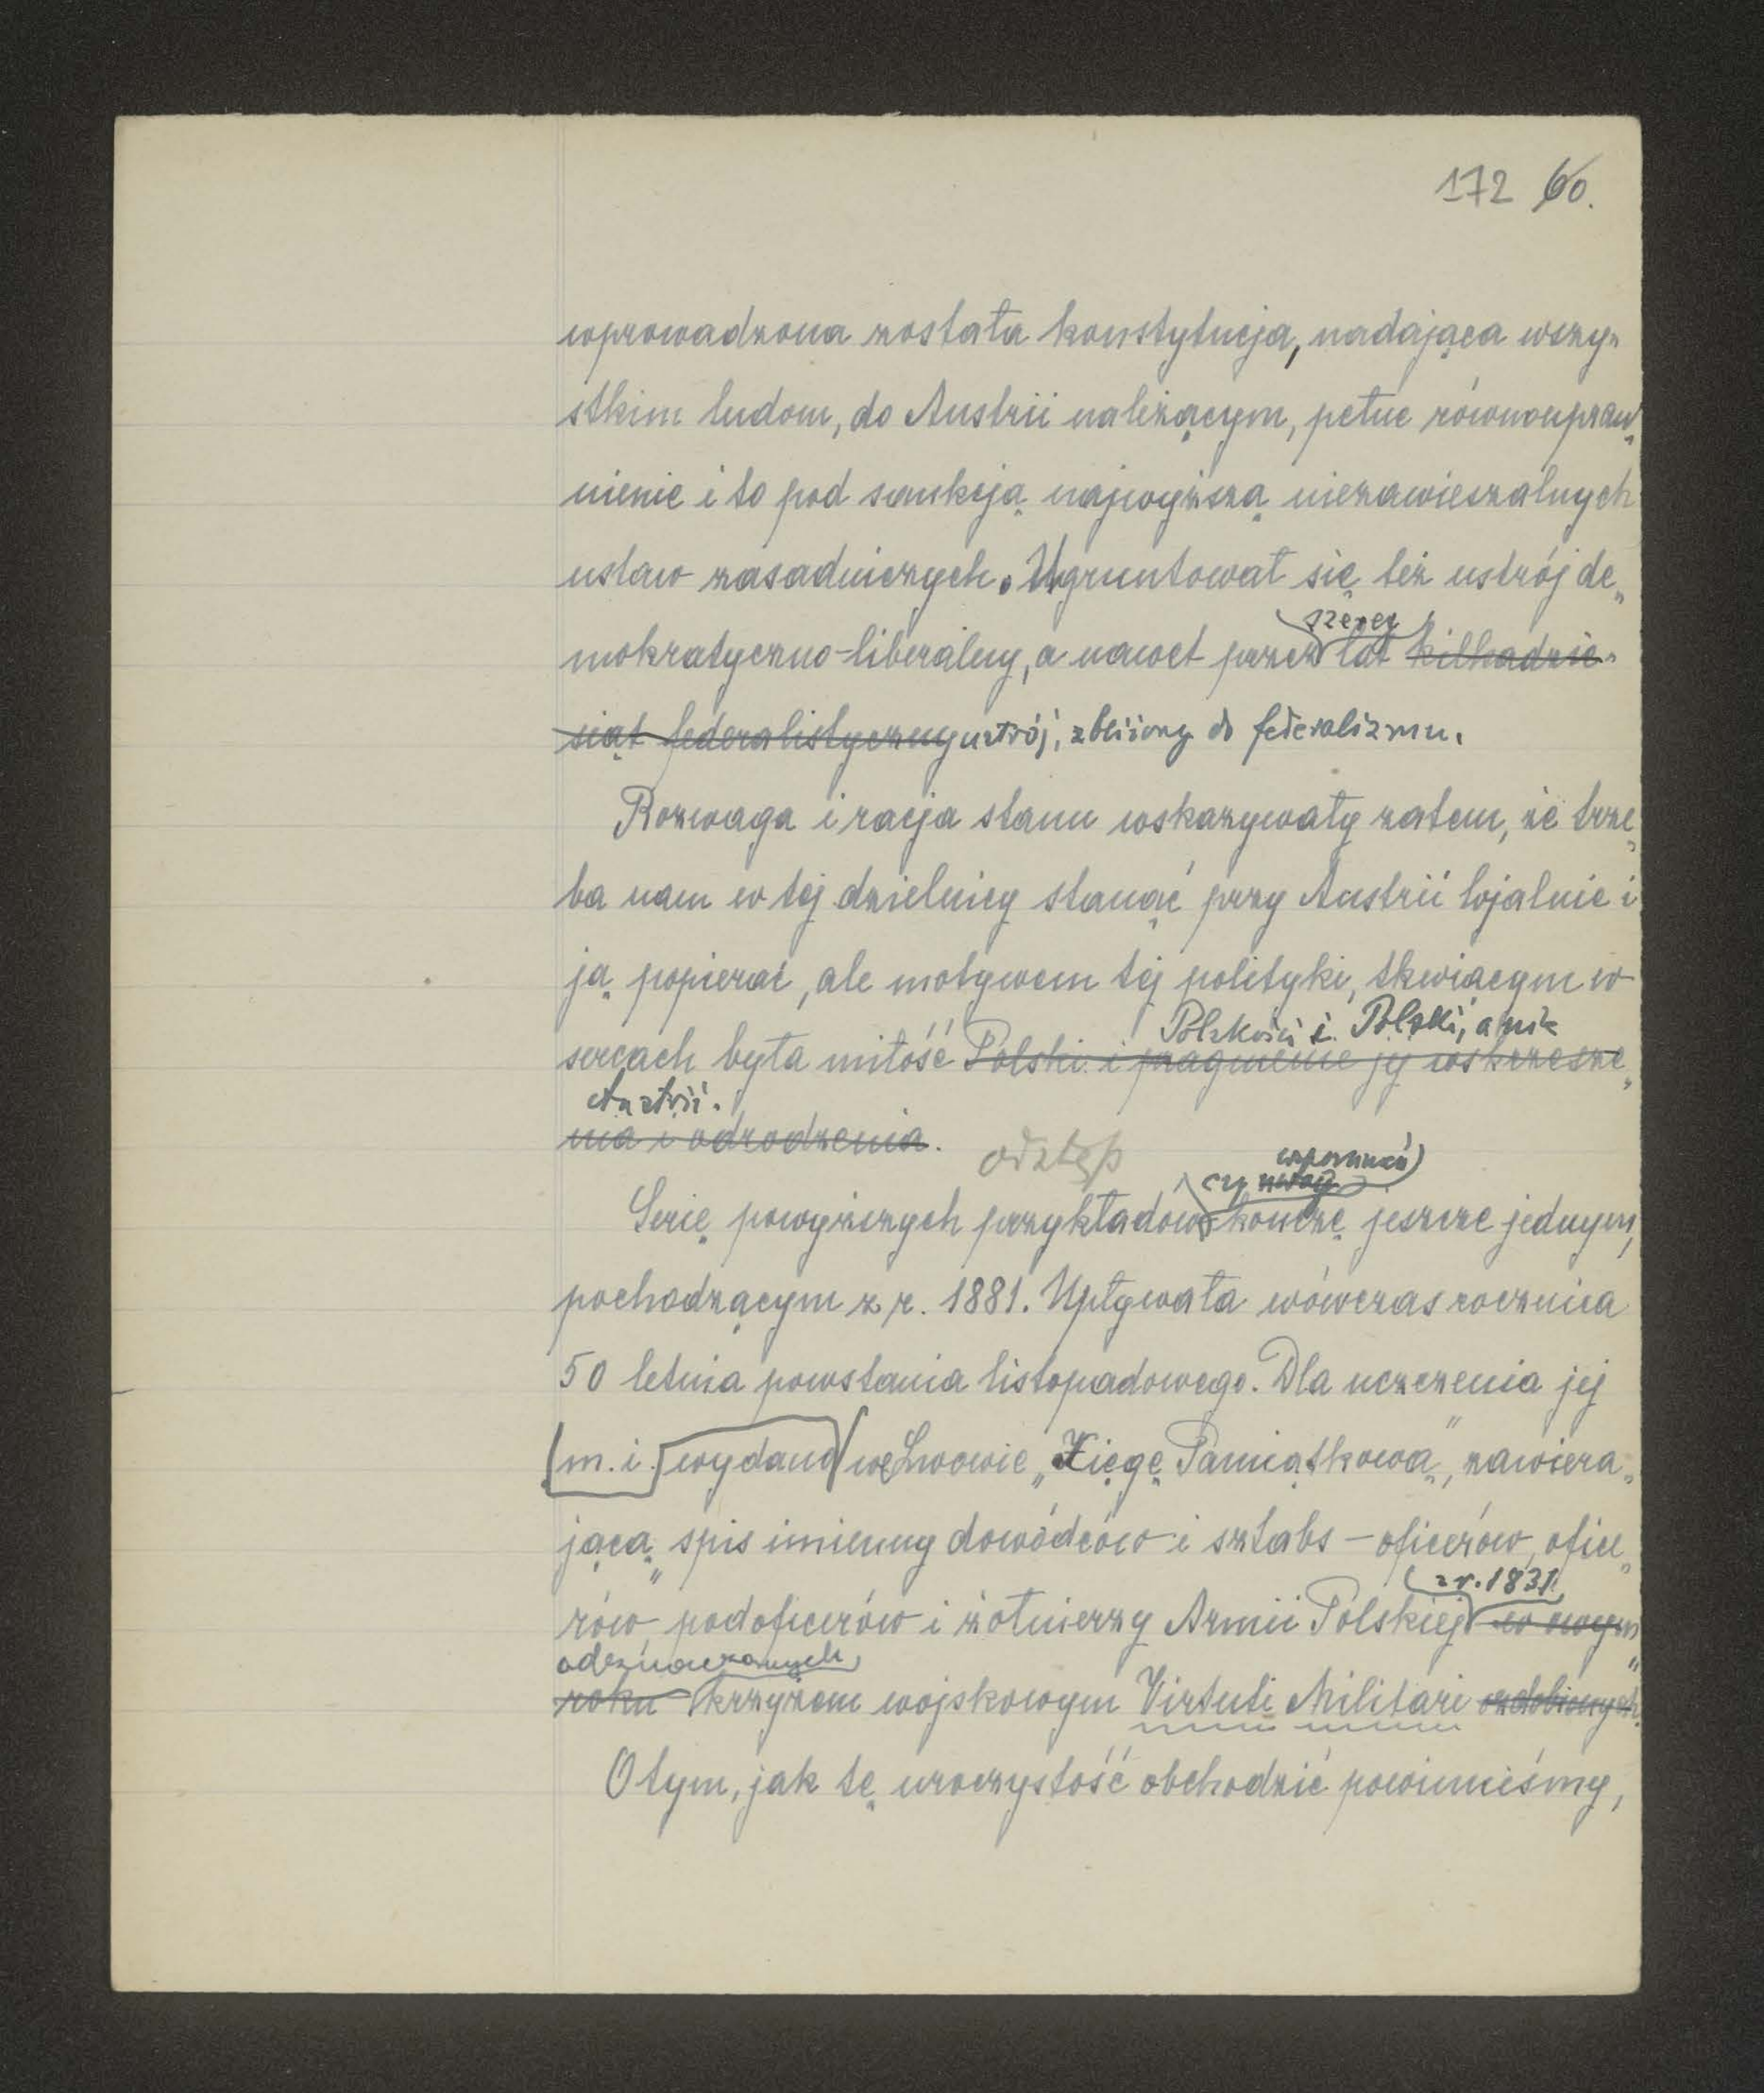 172 60.
wprowadzona została konstytucja, nadająca wszy„
stkim ludom, do Austrii należącym, pełne równoupraw„
nienie i to pod sankcją najwyższą niezawieszalnych
ustaw zasadniczych. Ugruntował się też ustrój de„
szereg
mokratyczno-liberalny, a nawet przez lat kilkadzie„
siąt federalistyczny ustrój, zbliżony do federalizmu.
Rozwaga i racja stanu wskazywały zatem, że trze„
ba nam w tej dzielnicy stanąć przy Austrii lojalnie i
ją popierać, ale motywem tej polityki, tkwiącym w
Polskości i Polski, a nie
sercach była miłość Polski i pragnienie jej wskrzesze„
Austrii.
nia i odrodzenia.
odstęp
wspomnień
czy
Serię powyższych przykładów kończę jeszcze jednym,
pochodzącym z r. 1881. Upływała wówczas rocznica
50 letnia powstania listopadowego. Dla uczczenia jej
m. i. wydano we Lwowie „Xięgę Pamiątkową", zawiera„
jącą „spis imienny dowódców i sztabs-oficerów, ofice„
z r. 1831
rów, podoficerów i żołnierzy Armii Polskiej w owym
odznaczonych
roku krzyżem wojskowym Virtuti Militari ozdobionych"
O tym, jak tę uroczystość obchodzić powinniśmy,